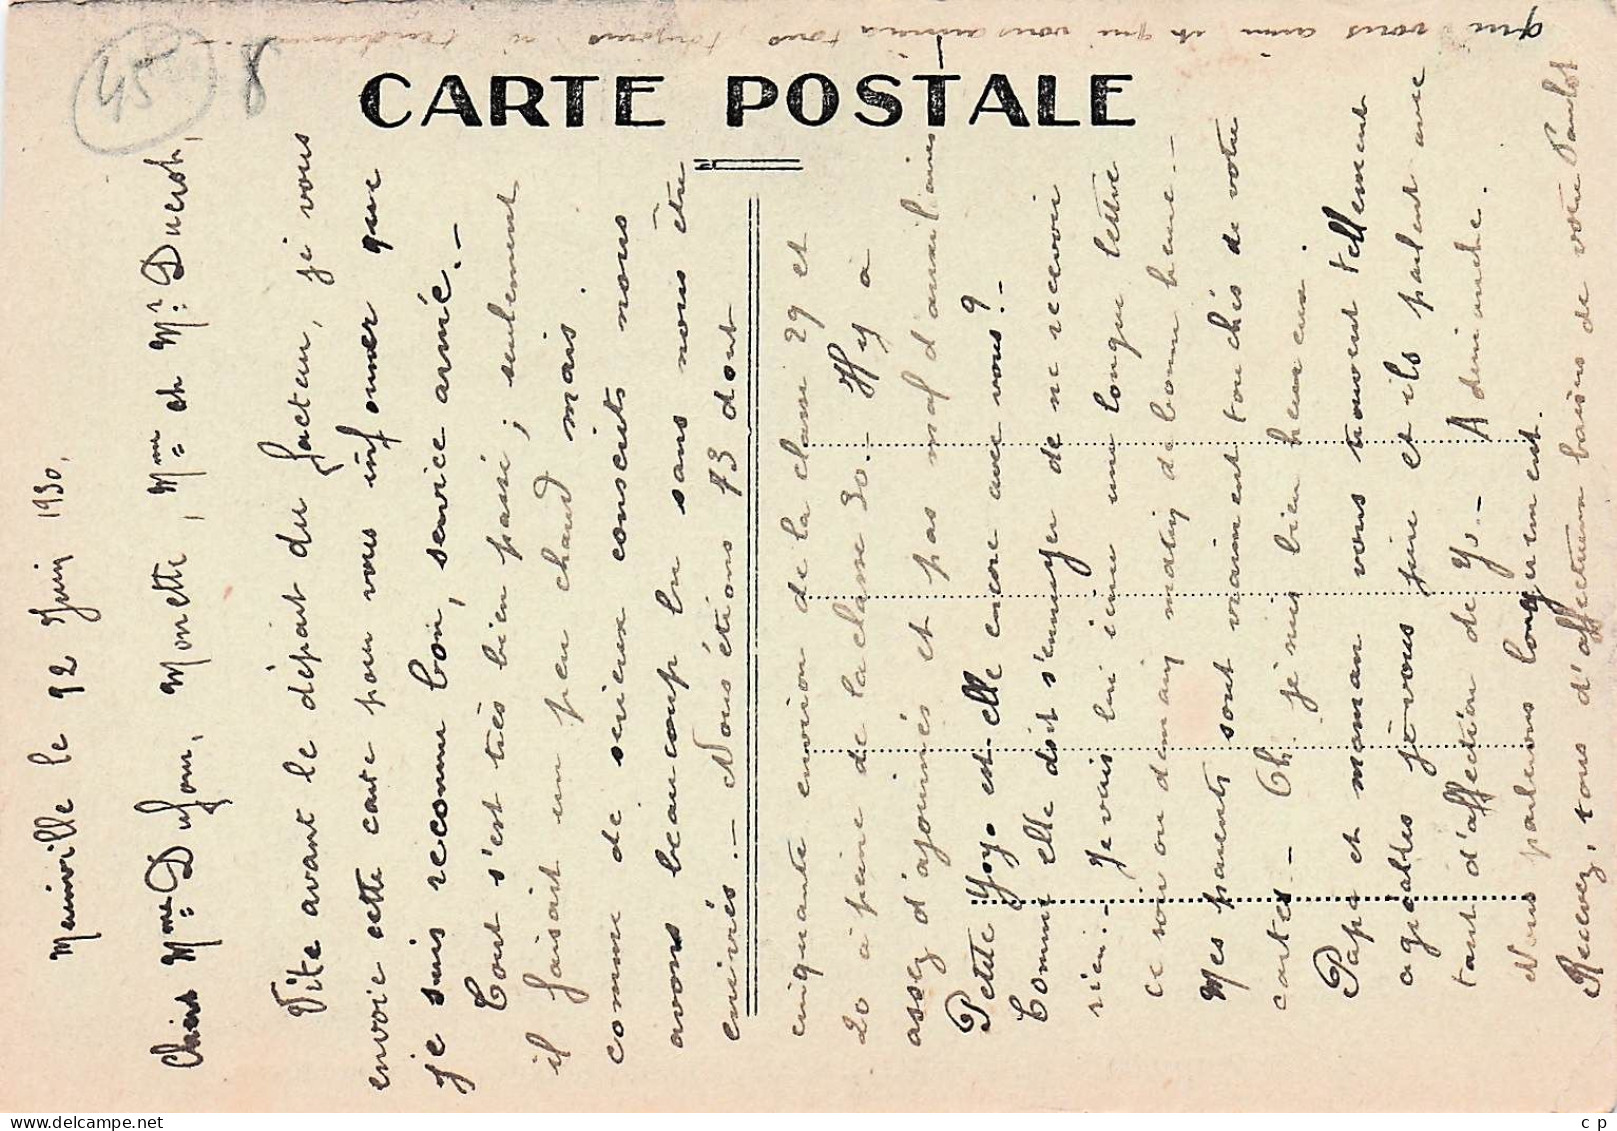 CARTE POSTALE
45
8
Mainville le 12 Juin 1930.
Chers Mme Dufour, Monette, Mme et Mr. Ducrot,
Vite avant le départ du facteur, je vous
envoie cette carte pour vous informer que
je suis reconnu bon, service armé. –
Tout s'est très bien passé ; seulement
il faisait un peu chaud mais
comme de sérieux conscrits nous
avons beaucoup bu sans nous être
enivrés. – Nous étions 73 dont
cinquante environ de la classe 29 et
20 à peine de la classe 30. – Il y a
assez d'ajournés et pas mal d'auxiliaires
Petite Yoy. est-elle encore avec vous ? –
Comme elle doit s'ennuyer de ne recevoir
rien. – Je vais lui écrire une longue lettre
ce soir ou demain matin de bonne heure. –
Mes parents sont vraiment touchés de votre
carte. – Oh. je suis bien heureux
Papa et maman vous trouvent tellement
agréables je vous jure et ils parlent avec
tant d'affection de Yo. – A dimanche.
Nous parlerons longuement.
Recevez, tous d'affectueux baisers de votre Paulot
qui vous aime et qui vous aimera tous, toujours si tendrement
c p